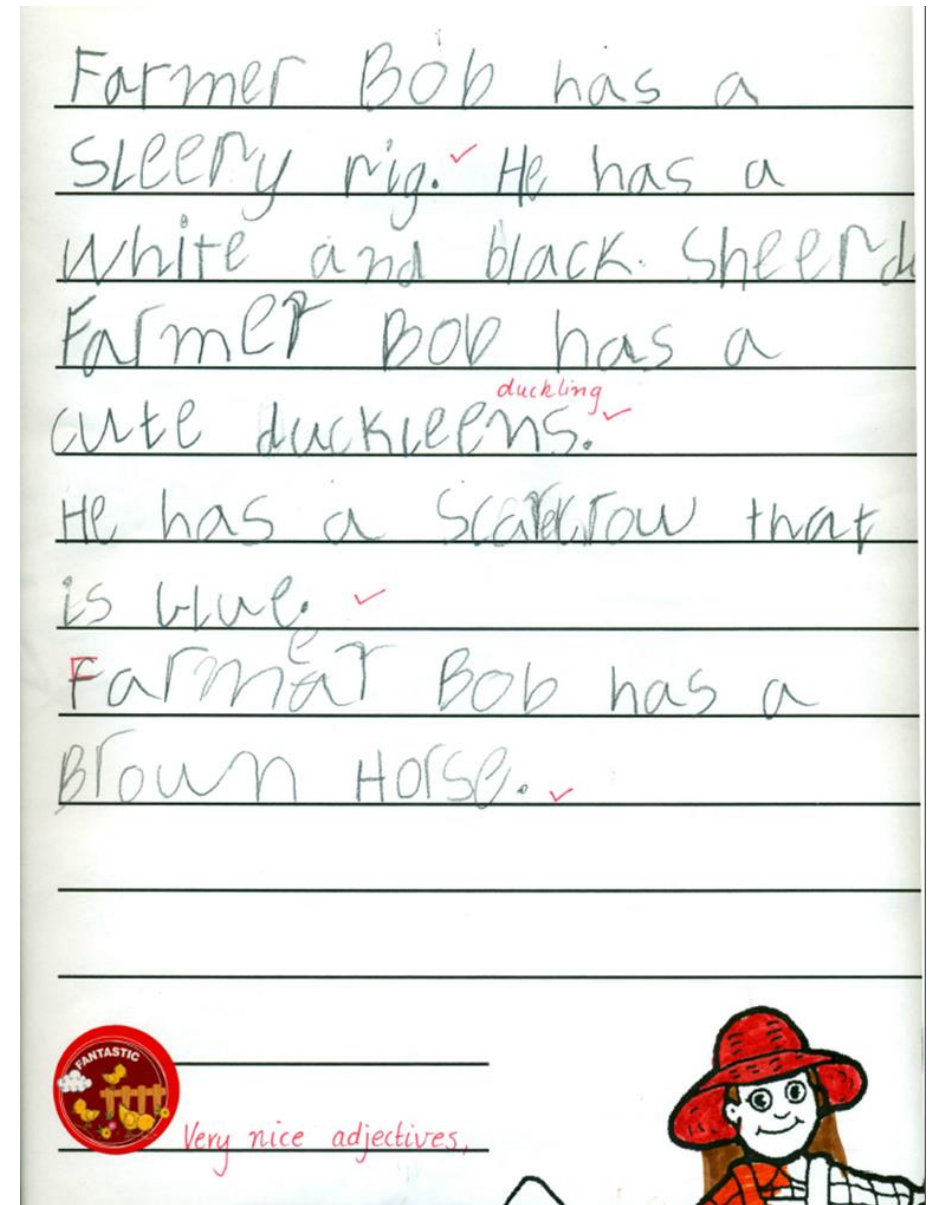 Farmer Bob has a
SLeepy pig. He has a
White and black. Sheepd
Farmer Bob has a
duckling
cute duckleens.
He has a Scarecrow that
is blue.
Farmer Bob has a
Brown Horse.
FANTASTIC
Very nice adjectives,